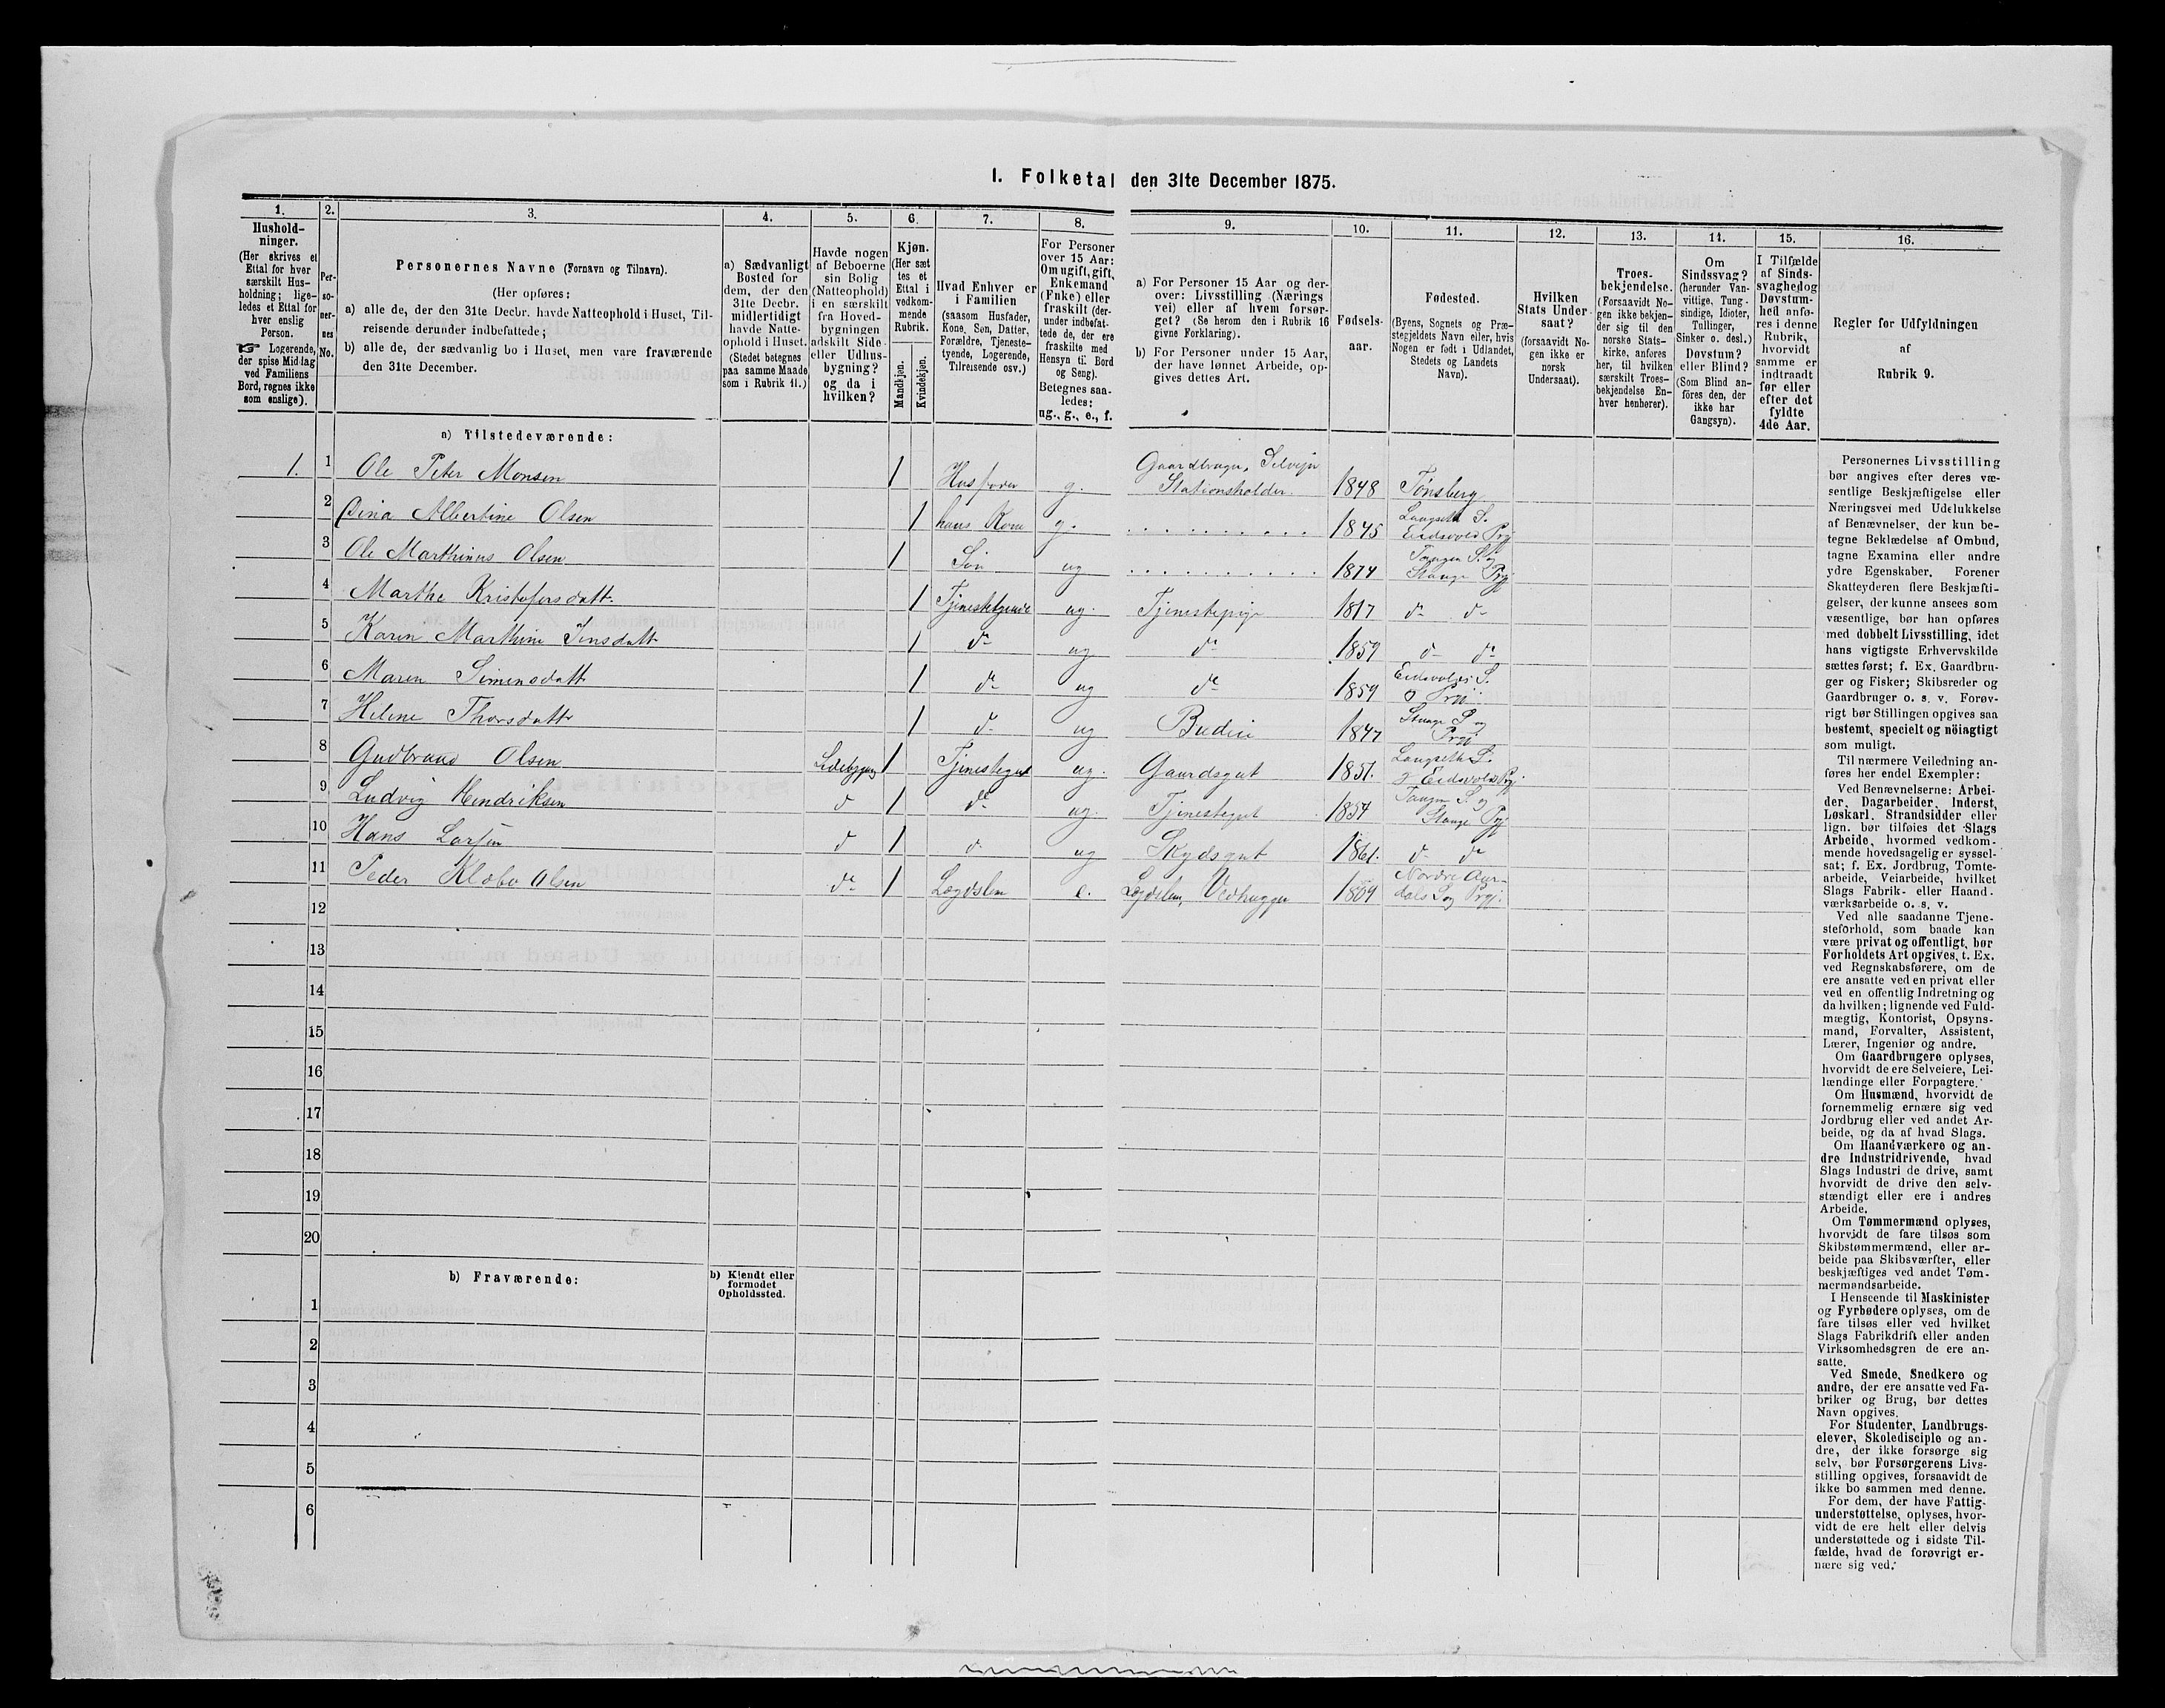 I. Folketal den 31te December 1875.
1.
Hushold-
ninger.
(Her skrives et
Ettal for hver
særskilt Hus-
holdning; lige-
ledes et Ettal for
hver enslig
Person.
☞ Logerende,
der spise Middag
ved Familiens
Bord, regnes ikke
som enslige).
2.
Per-
so-
ner-
nes
No.
3.
Personernes Navne (Fornavn og Tilnavn).
(Her opføres:
a) alle de, der den 31te Decbr. havde Natteophold i Huset, Til-
reisende derunder indbefattede;
b) alle de, der sædvanlig bo i Huset, men vare fraværende
den 31te December.
4.
a) Sædvanligt
Bosted for
dem, der den
31te Decbr.
midlertidigt
havde Natte-
ophold i Huset.
(Stedet betegnes
paa samme Maade
som i Rubrik 11.)
5.
Havde nogen
af Beboerne
sin Bolig
(Natteophold)
i en særskilt
fra Hoved-
bygningen
adskilt Side-
eller Udhus-
bygning?
og da i
hvilken?
6.
Kjøn.
(Her sæt
tes et
Ettal i
vedkom-
mende
Rubrik.
Mandkjøn.
Kvindekjøn.
7.
Hvad Enhver er
i Familien
(saasom Husfader,
Kone, Søn, Datter,
Forældre, Tjeneste-
tyende, Logerende,
Tilreisende osv.)
8.
For Personer
over 15 Aar:
Om ugift, gift,
Enkemand
(Enke) eller
fraskilt (der-
under indbefat-
tede de, der ere
fraskilte med
Hensyn til Bord
og Seng).
Betegnes saa-
ledes:
ug., g., e., f.
9.
a) For Personer 15 Aar og der-
over: Livsstilling (Nærings
vei) eller af hvem forsør-
get? (Se herom den i Rubrik 16
givne Forklaring).
b) For Personer under 15 Aar,
der have lønnet Arbeide, op-
gives dettes Art.
10.
Fødsels-
aar.
11.
Fødested.
(Byens, Sognets og Præ-
stegjeldets Navn eller, hvis
Nogen er født i Udlandet,
Stedets og Landets
Navn).
12.
Hvilken
Stats Under-
saat?
(forsaavidt No-
gen ikke er
norsk
Undersaat).
13.
Troes-
bekjendelse.
(Forsaavidt No-
gen ikke bekjen-
der sig til den
norske Stats-
kirke, anføres
her, til hvilken
særskilt Troes-
bekjendelse En-
hver henhører).
14.
Om
Sindssvag?
(herunder Van-
vittige, Tung-
sindige, Idioter,
Tullinger,
Sinker o. desl.)
Døvstum?
eller Blind?
(Som Blind an-
føres den, der
ikke har
Gangsyn).
15.
I Tilfælde
af Sinds-
svaghed og
Døvstum-
hed anfø-
res i denne
Rubrik,
hvorvidt
samme er
indtraadt
før eller
efter det
fyldte
4de Aar.
16.
Regler for Udfyldningen
af
Rubrik 9.
a) Tilstedeværende:
1. 1 Ole Peter Monsen 1 Husfader g. Gaardbruger, Selvejer Stationsholder. 1848 Tønsberg
2 Dina Albertine Olsen 1 hans Kone g. .......... 1845 Langseth S. Eidsvold Prgj
3 Ole Marthinus Olsen 1 Søn ug .......... 1874 Tangen S. og Stange Prgj
4 Marthe Kristofersdatt. 1 Tjenestetyende ug. Tjenestepige 1817 do do
5 Karen Marthine Jensdatt 1 do ug do 1859 do do
6 Maren Simensdatt 1 do ug do 1859 Eidsvolds S. og Prgj
7 Helene Thorsdatt 1 do ug Budeie 1847 Stange S. og Prgj
8 Gudbrand Olsen Sidebygng 1 Tjenestegut ug. Gaardsgut 1851. Langseth S. og Eidsvold Prgj.
9 Ludvig Hendriksen do 1 do ug. Tjenestegut 1854 Tangen S. og Stange Prgj
10 Hans Larsen do 1 do ug Skydsgut 1861. do do
11 Peder Klæbo Olsen do 1 Lægdslem e. Lægdslem, Vedhugger 1809 Nordre Aur- dals S. og Prgj.
12
13
14
15
16
17
18
19
20
b) Fraværende:
b) Kjendt eller
formodet
Opholdssted.
1
2
3
4
5
6
Personernes Livsstilling
bør angives efter deres væ-
sentlige Beskjæftigelse eller
Næringsvei med Udelukkelse
af Benævnelser, der kun be-
tegne Beklædelse af Ombud,
tagne Examina eller andre
ydre Egenskaber. Forener
Skatteyderen flere Beskjæfti-
gelser, der kunne ansees som
væsentlige, bør han opføres
med dobbelt Livsstilling, idet
hans vigtigste Erhvervskilde
sættes først; f. Ex. Gaardbru-
ger og Fisker; Skibsreder og
Gaardbruger o. s. v. Forøv-
rigt bør Stillingen opgives saa
bestemt, specielt og nöiagtigt
som muligt.
Til nærmere Veiledning an-
føres her endel Exempler:
Ved Benævnelserne: Arbei-
der, Dagarbeider, Inderst,
Løskarl, Strandsidder eller
lign. bør tilføies det Slags
Arbeide, hvormed vedkom-
mende hovedsagelig er syssel-
sat; f. Ex. Jordbrug, Tomte-
arbeide, Veiarbeide, hvilket
Slags Fabrik- eller Haand-
værksarbeide o. s. v.
Ved alle saadanne Tjene-
steforhold, som baade kan
være privat og offentligt, bør
Forholdets Art opgives, t. Ex.
ved Regnskabsførere, om de
ere ansatte ved en privat eller
ved en offentlig Indretning og
da hvilken; lignende ved Fuld-
mægtig, Kontorist, Opsyns-
mand, Forvalter, Assistent,
Lærer, Ingeniør og andre.
Om Gaardbrugere oplyses,
hvorvidt de ere Selveiere, Lei-
lændinge eller Forpagtere.
Om Husmænd, hvorvidt de
fornemmelig ernære sig ved
Jordbrug eller ved andet Ar-
beide, og da af hvad Slags.
Om Haandværkere og an-
dre Industridrivende, hvad
Slags Industri de drive, samt
hvorvidt de drive den selv-
stændigt eller ere i andres
Arbeide.
Om Tømmermænd oplyses,
hvorvidt de fare tilsøs som
Skibstømmermænd, eller ar-
beide paa Skibsværfter, eller
beskjæftiges ved andet Tøm-
mermandsarbeide.
I Henseende til Maskinister
og Fyrbødere oplyses, om de
fare tilsøs eller ved hvilket
Slags Fabrikdrift eller anden
Virksomhedsgren de ere an-
satte.
Ved Smede, Snedkere og
andre, der ere ansatte ved Fa-
briker og Brug, bør dettes
Navn opgives.
For Studenter, Landbrugs-
elever, Skoledisciple og an-
dre, der ikke forsørge sig
selv, bør Forsørgerens Livs-
stilling opgives, forsaavidt de
ikke bo sammen med denne.
For dem, der have Fattig-
understøttelse, oplyses, hvor-
vidt de ere helt eller delvis
understøttede og i sidste Til-
fælde, hvad de forøvrigt er-
nære sig ved.